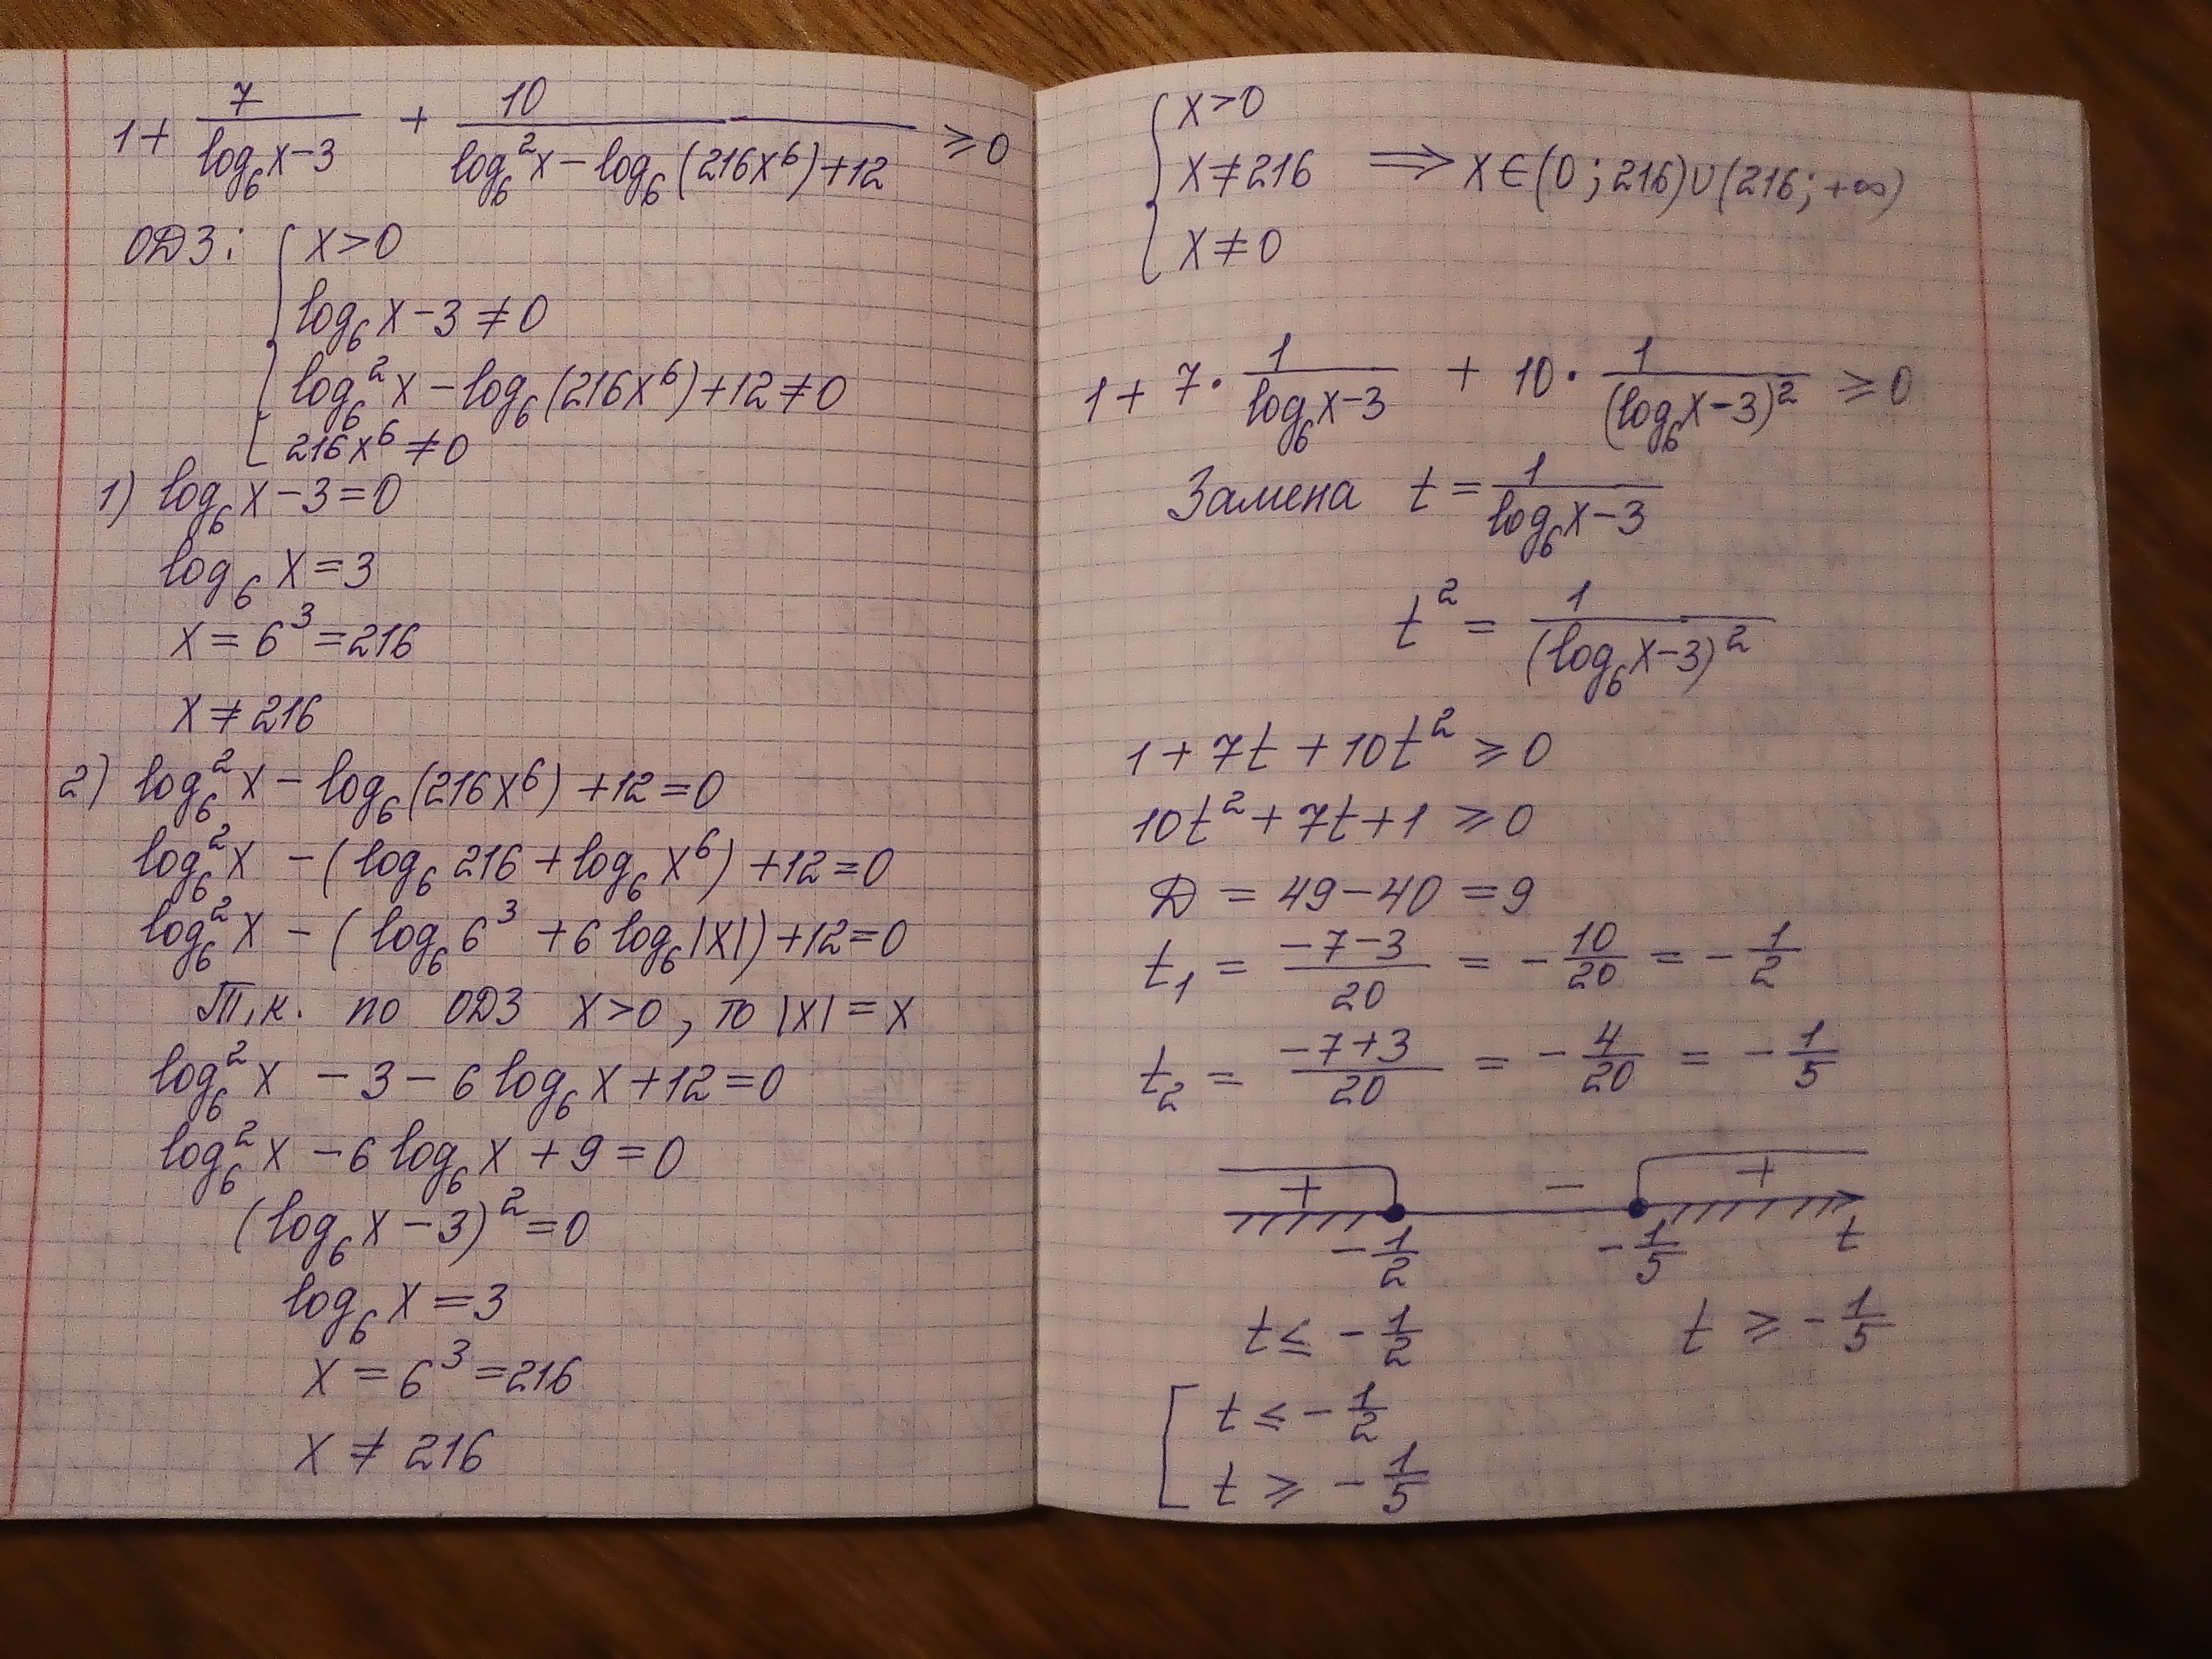 1 + 7/(log₆x−3) + 10/(log₆²x − log₆(216x⁶)+12) ⩾ 0
ОДЗ: { x>0
log₆x−3 ≠ 0
log₆²x − log₆(216x⁶)+12 ≠ 0
216x⁶ ≠ 0
1) log₆x − 3 = 0
log₆x = 3
x = 6³ = 216
x ≠ 216
2) log₆²x − log₆(216x⁶) + 12 = 0
log₆²x − (log₆216 + log₆x⁶) + 12 = 0
log₆²x − (log₆6³ + 6log₆|x|) + 12 = 0
Т.к. по ОДЗ x>0, то |x| = x
log₆²x − 3 − 6log₆x + 12 = 0
log₆²x − 6log₆x + 9 = 0
(log₆x − 3)² = 0
log₆x = 3
x = 6³ = 216
x ≠ 216
{ x>0
x ≠ 216 ⟹ x∈(0; 216)∪(216; +∞)
x ≠ 0
1 + 7 · 1/(log₆x−3) + 10 · 1/(log₆x−3)² ⩾ 0
Замена t = 1/(log₆x−3)
t² = 1/(log₆x−3)²
1 + 7t + 10t² ⩾ 0
10t² + 7t + 1 ⩾ 0
Д = 49 − 40 = 9
t₁ = (−7−3)/20 = −10/20 = −1/2
t₂ = (−7+3)/20 = −4/20 = −1/5
+ − +
−1/2 −1/5 t
t ⩽ −1/2 t ⩾ −1/5
[ t ⩽ −1/2
t ⩾ −1/5